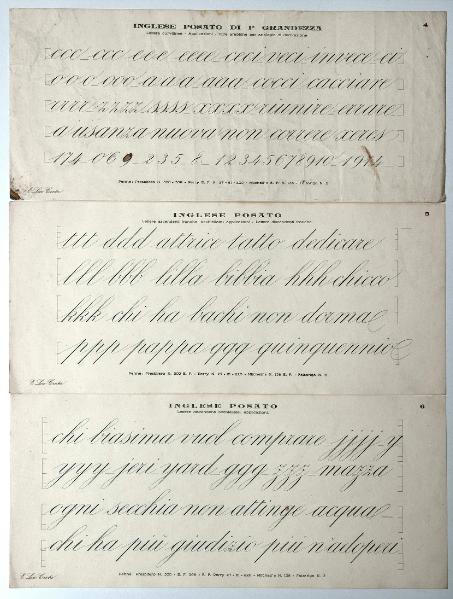 INGLESE POSATO DI Iª GRANDEZZA
4
ccc ccc eve eeee ceci veci invece ci
o o c ooo a.a.a aaa cocci cacciare
rrrr zzzz ssss xxixx riunire errare
a usanza nuova non correre xeres
174 069 2358 12345678910 1914
INGLESE POSATO
5
ttt ddd attrice tatto dedicare
lll bbb lilla bibbia hhh chicco
kkk chi ha bachi non dorma
ppp pappa qqq quinquennio
INGLESE POSATO
6
chi biasima vuol comprare jjjj y
yyy jeri yard ggg zzz mazza
ogni secchia non attinge acqua
chi ha più giudizio più n'adoperi